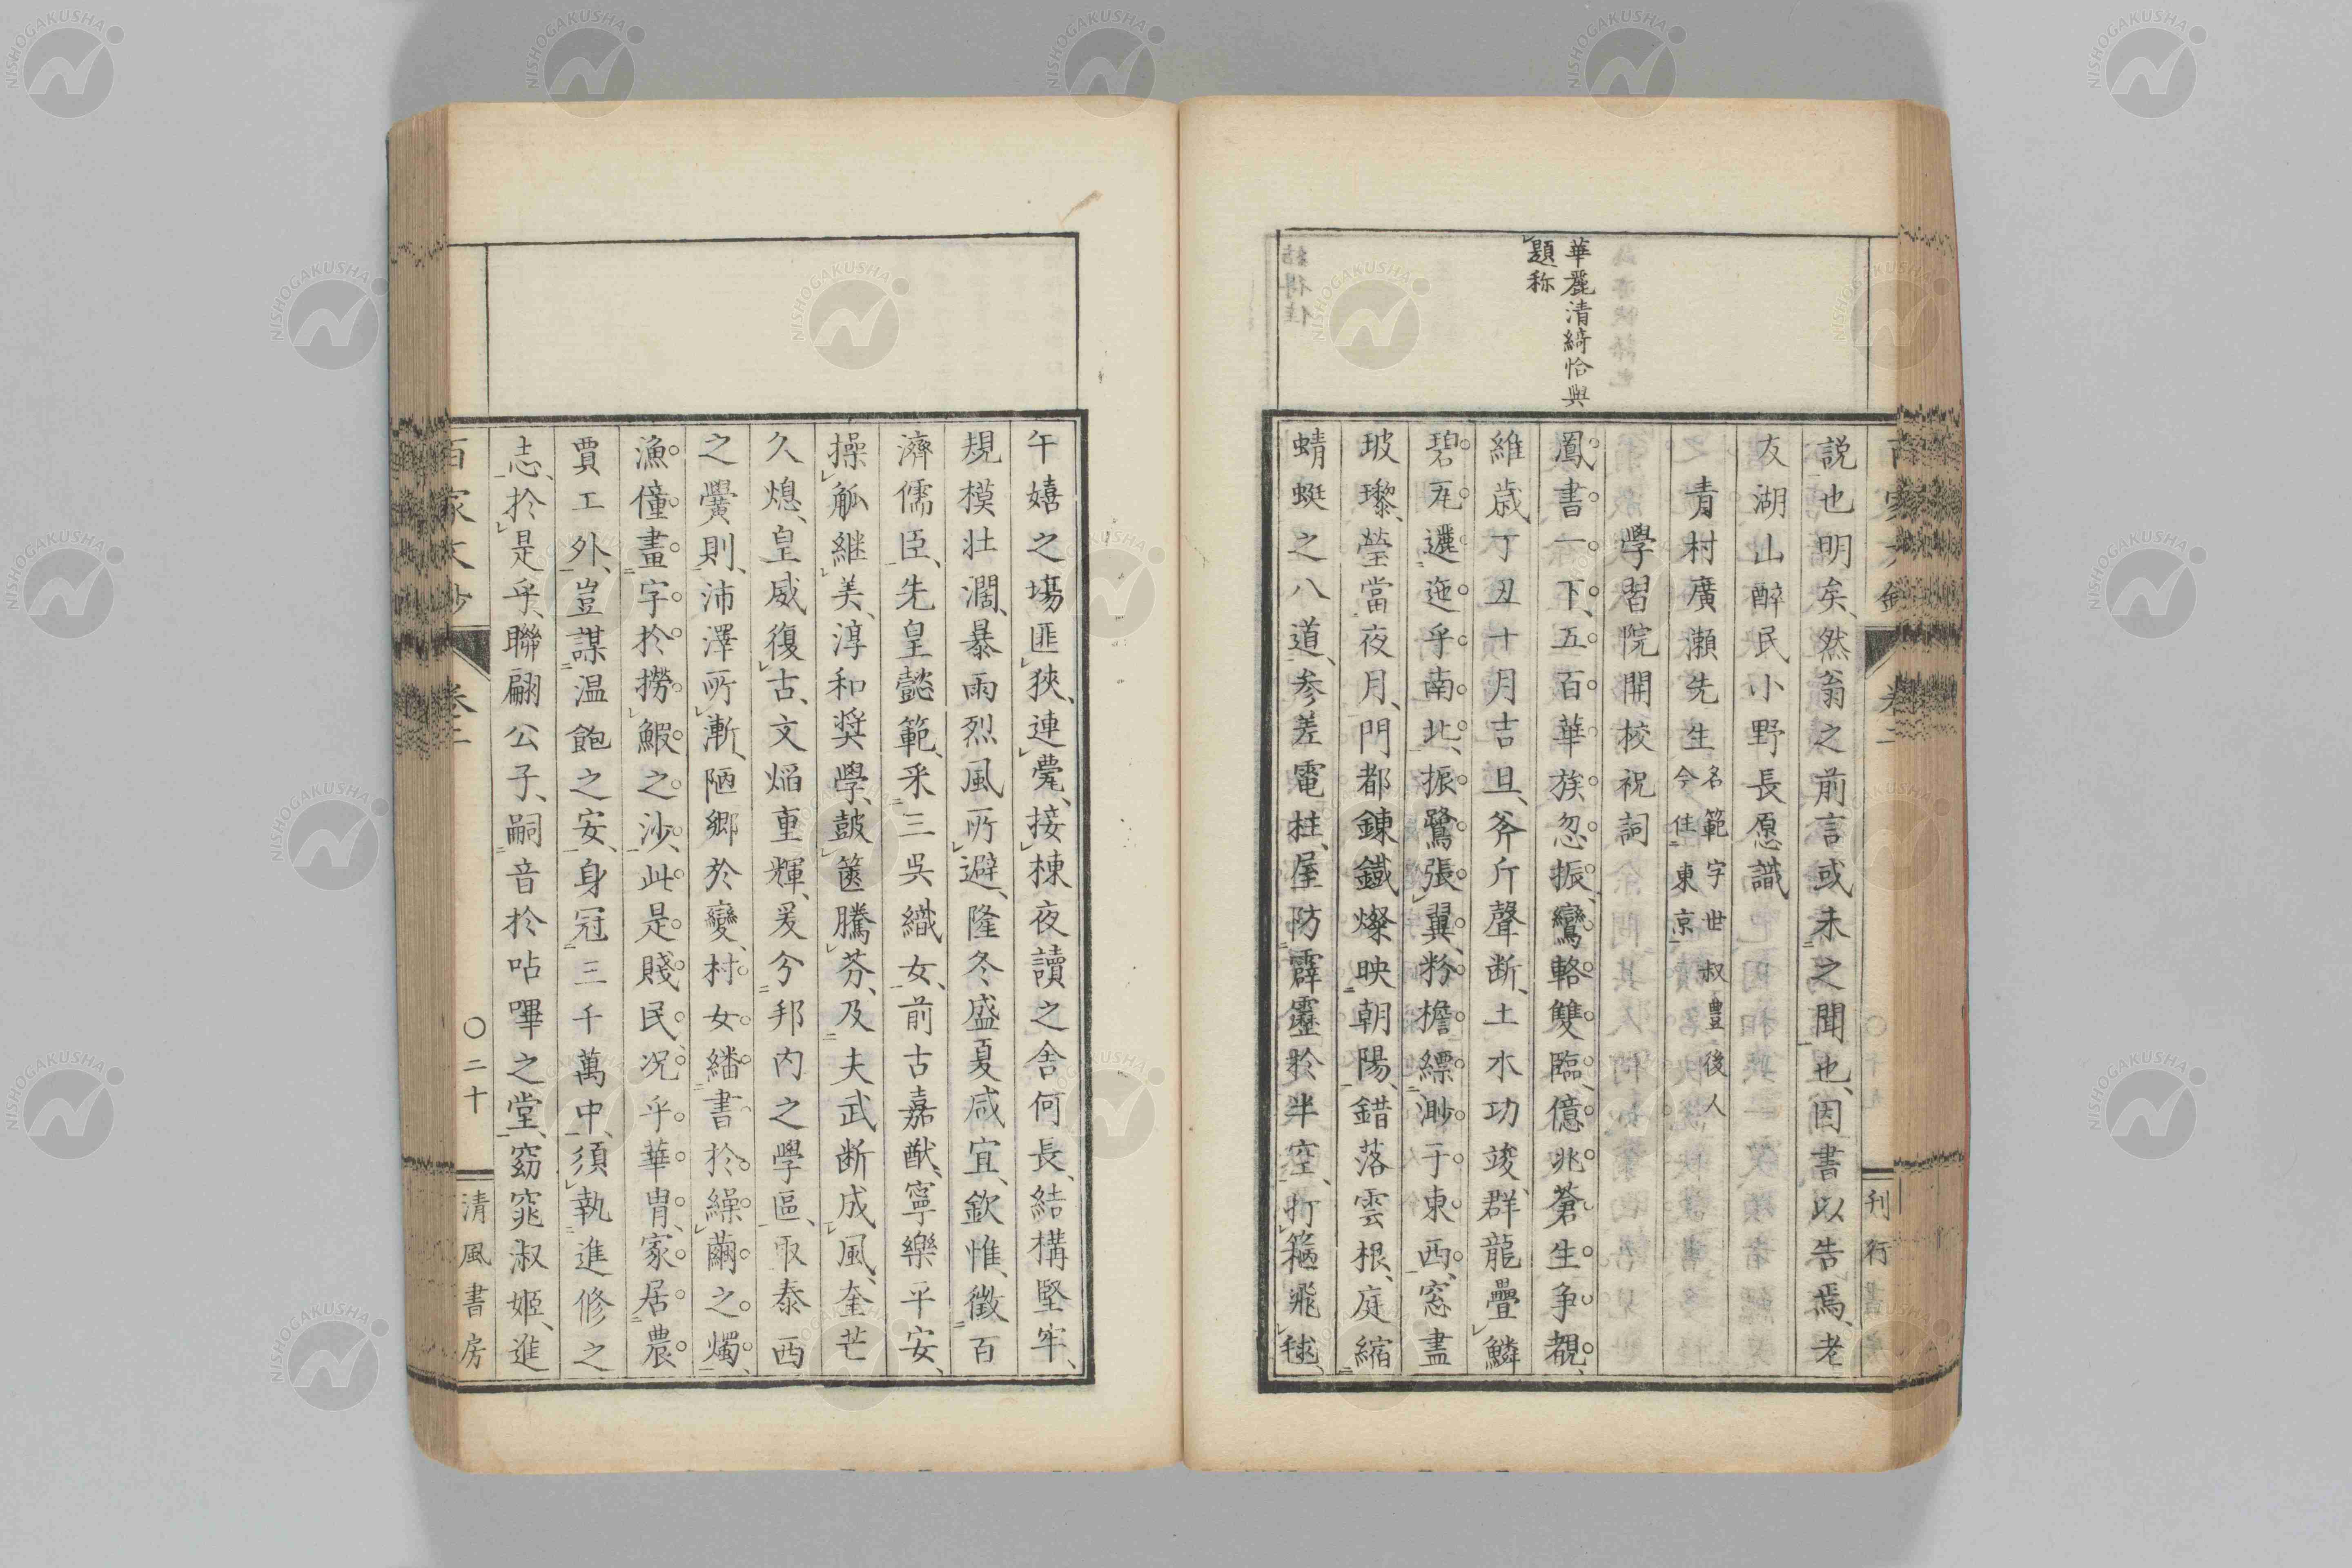 華麗清綺恰與
題称
説也明矣、然翁之前言或未之聞也、因書以告焉、老
友湖山醉民小野長愿識
青村廣瀬先生
名範字世叔豊後人
今住東京
學習院開校祝詞
鳳書一下、五百華族忽振、鸞輅雙臨、億兆蒼生争覩、
維歳丁丑十月吉旦、斧斤聲断、土水功竣、群龍疊鱗
碧瓦邐迤乎南北、振鷺張翼、粉檐縹渺于東西、窓盡
玻瓈、瑩當夜月、門都錬鐵、燦映朝陽、錯落雲根、庭縮
蜻蜓之八道、参差電柱、屋防霹靂於半空、打毬飛毬、
午嬉之場匪狹、連甍、接棟夜讀之舎何長、結構堅牢、
規模壮濶、暴雨烈風所避、隆冬盛夏咸宜、欽惟、徴百
濟儒臣、先皇懿範、釆三呉織女、前古嘉猷、寧樂平安、
操觚継美、淳和奨學、皷篋騰芬、及夫武断成風、奎芒
久熄、皇威復古、文焔重輝、爰今邦内之學區、取泰西
之黌則、沛澤所漸、陋郷於變、村女繙書於繰繭之燭、
漁僮畫字於撈鰕之沙、此是賤民、况乎華冑、家居農
賈工外、豈謀温飽之安、身冠三千萬中、須執進修之
志、於是乎、聯翩公子、嗣音於呫嗶之堂、窈窕淑姫、進
百家文鈔
卷二
〇二十
清風書房
刊行